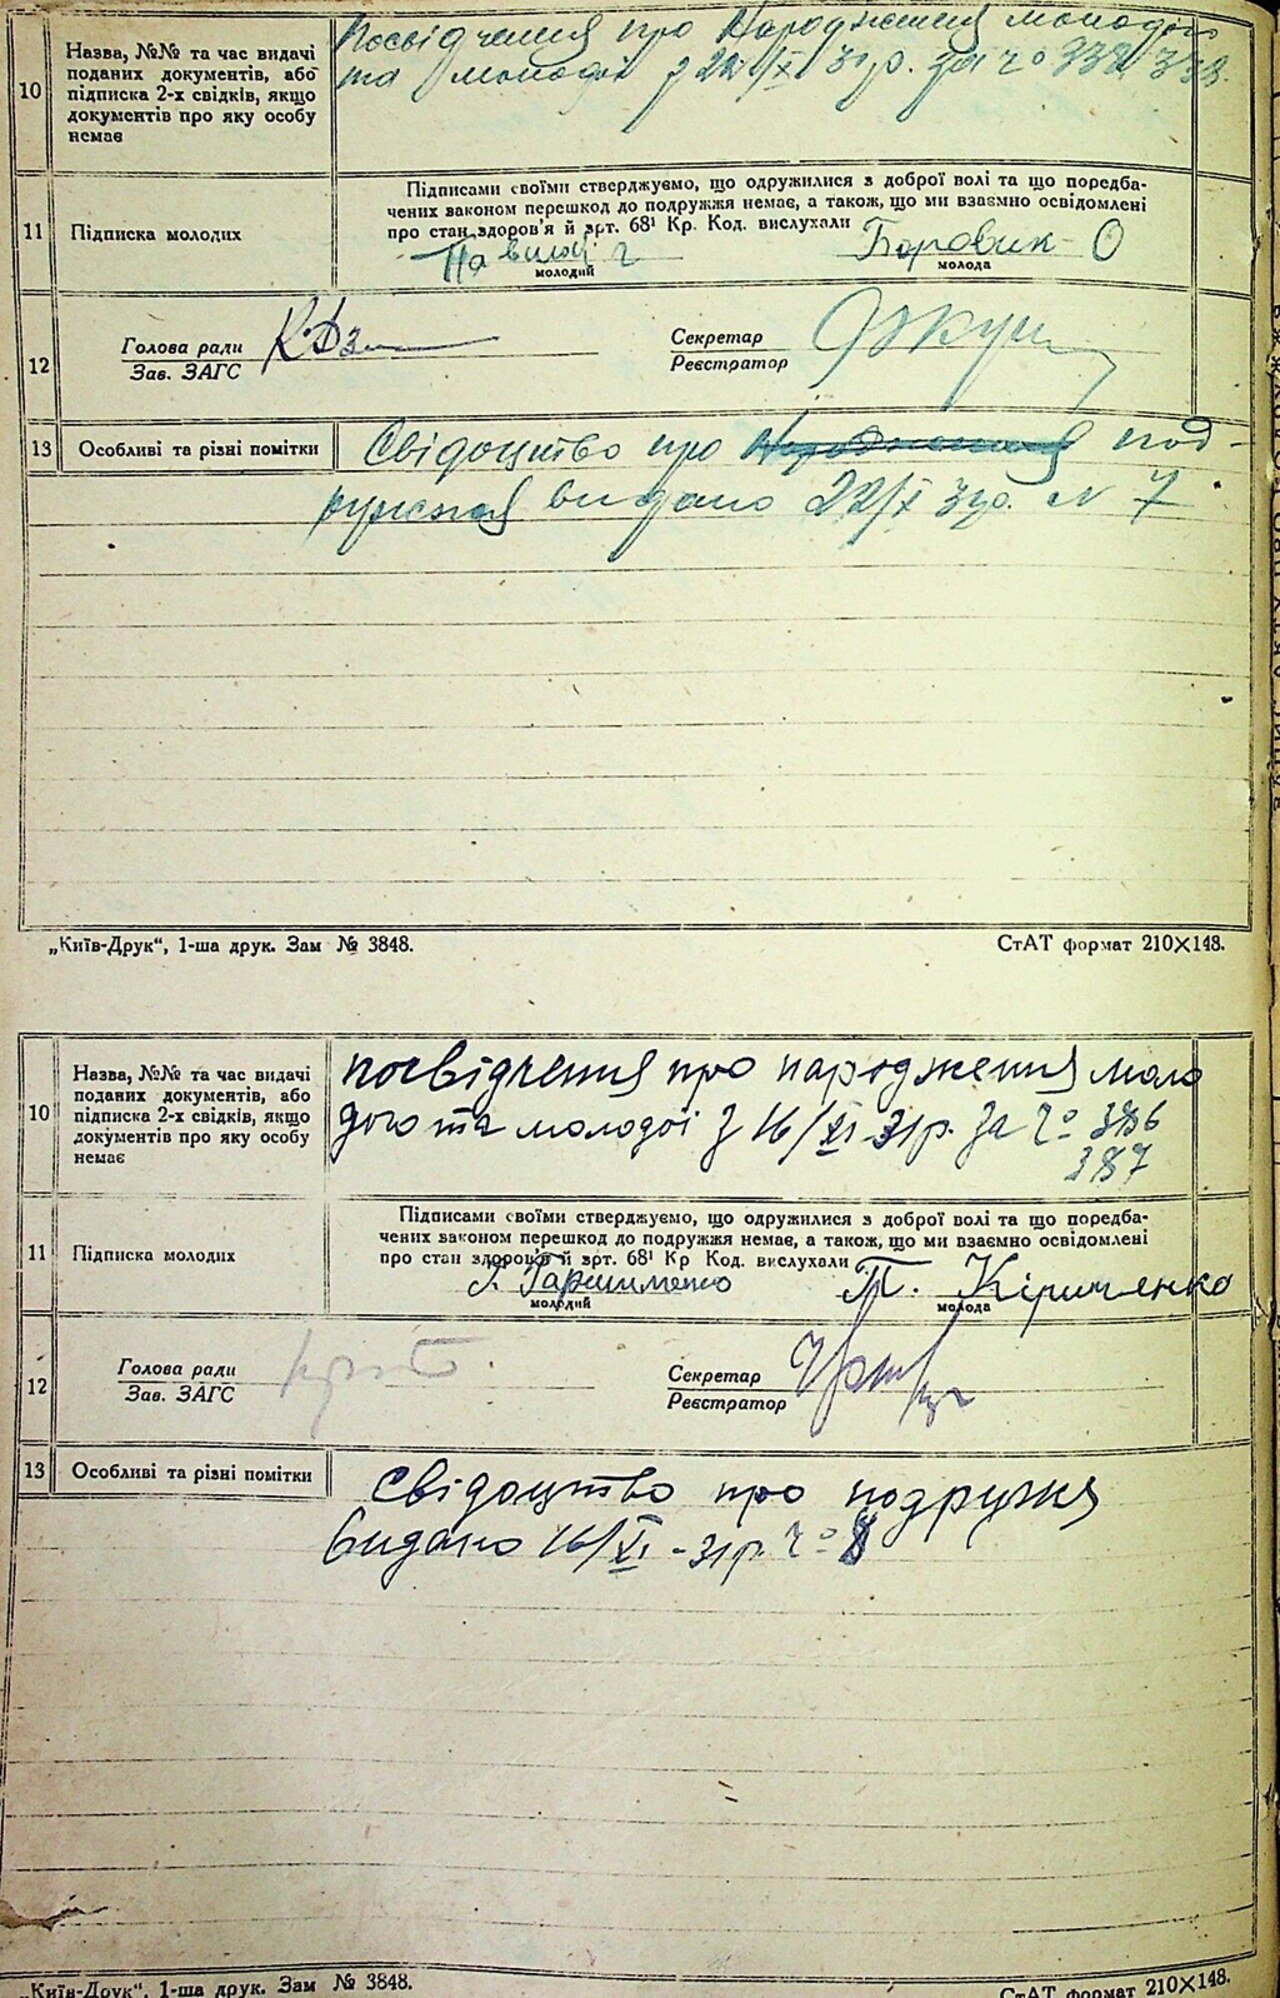 10
Назва, №№ та час видачі
поданих документів, або
підписка 2-х свідків, якщо
документів про яку особу
немає
Посвідчення про народження молодого
та молодої з 22/X 31 р. за ч° 338, 339.
11
Підписка молодих
Підписами своїми стверджуємо, що одружилися з доброї волі та що передба-
чених законом перешкод до подружжя немає, а також, що ми взаємно освідомлені
про стан здоров'я й арт. 68¹ Кр. Код. вислухали
Боровик О
молодий
молода
12
Голова ради
Зав. ЗАГС
Секретар
Реєстратор
13
Особливі та різні помітки
Свідоцтво про под-
ружжя видано 22/X 31р. N 7
„Київ-Друк“, 1-ша друк. Зам № 3848.
СтАТ формат 210×148.
10
Назва, №№ та час видачі
поданих документів, або
підписка 2-х свідків, якщо
документів про яку особу
немає
посвідчення про народження моло
дого та молодої з 16/XI-31р. за ч° 386
387
11
Підписка молодих
Підписами своїми стверджуємо, що одружилися з доброї волі та що передба-
чених законом перешкод до подружжя немає, а також, що ми взаємно освідомлені
про стан здоров'я й арт. 68¹ Кр Код. вислухали
П. Кіриченко
молодий
молода
12
Голова ради
Зав. ЗАГС
Секретар
Реєстратор
13
Особливі та різні помітки
свідоцтво про подружжя
видано 16/XI-31р. ч° 8
„Київ-Друк“, 1-ша друк. Зам № 3848.
СтАТ формат 210×148.